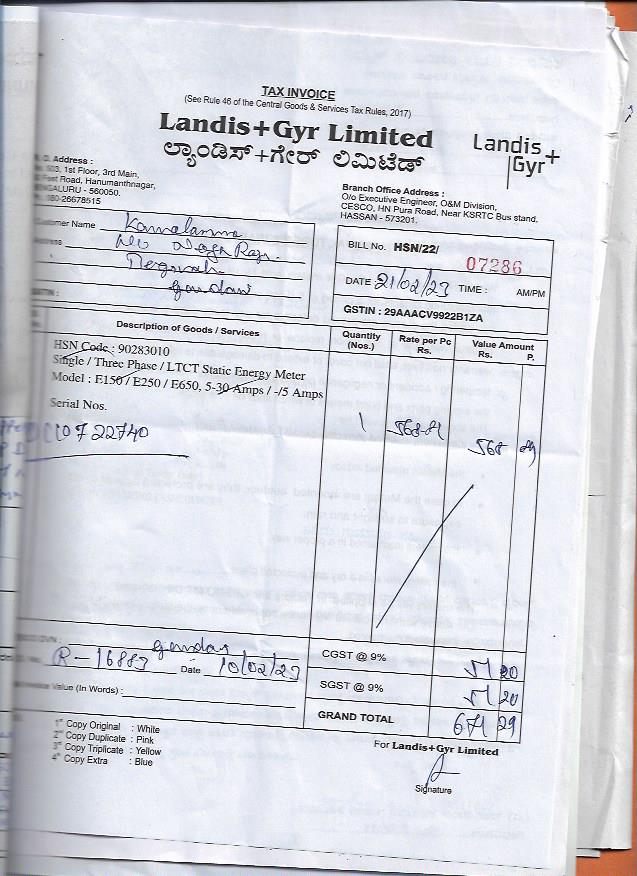 TAX INVOICE
(See Rule 46 of the Central Goods & Services Tax Rules, 2017)
Landis+Gyr Limited
ಲ್ಯಾಂಡಿಸ್+ಗೇರ್ ಲಿಮಿಟೆಡ್
Landis+
Gyr
Address :
1st Floor, 3rd Main,
Road, Hanumanthnagar,
560050.
080-26678515
Branch Office Address :
O/o Executive Engineer, O&M Division,
CESCO, HN Pura Road, Near KSRTC Bus stand,
HASSAN - 573201.
Customer Name Kamalamma
BILL No. HSN/22/ 07286
DATE 21/02/23 TIME : AM/PM
GSTIN : 29AAACV9922B1ZA
Description of Goods / Services
Quantity (Nos.)
Rate per Pc Rs.
Value Amount Rs. P.
HSN Code : 90283010
Single / Three Phase / LTCT Static Energy Meter
Model : E150 / E250 / E650, 5-30 Amps / -/5 Amps
Serial Nos.
10722740
1
568-81
568
R-16883 Date 10/02/23
Value (In Words) :
CGST @ 9% 51 20
SGST @ 9% 51 20
GRAND TOTAL 671 29
1st Copy Original : White
2nd Copy Duplicate : Pink
3rd Copy Triplicate : Yellow
4th Copy Extra : Blue
For Landis+Gyr Limited
Signature